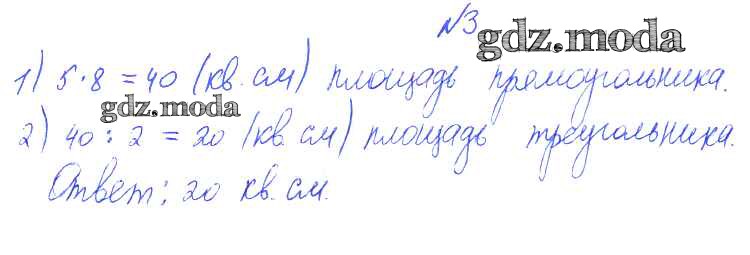 №3
gdz.moda
1) 5·8 = 40 (кв. см) площадь прямоугольника.
gdz.moda
2) 40 : 2 = 20 (кв. см) площадь треугольника.
Ответ: 20 кв. см.